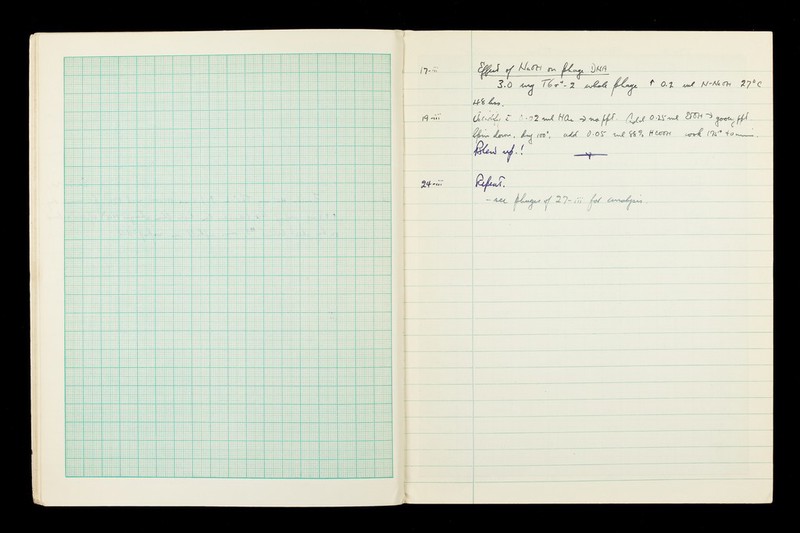 17-iii Effect of NaOH on phage DNA
3.0 mg T6r+-2 whole phage 0.2 ml N-NaOH 27°C
48 hrs.
19-iii 0.02 ml → no ppt. Add 0.25 ml EtOH → ppt
Spin down, dry 100°, add 0.05 ml 88% HCOOH 175°
Blew up.!
24-iii Repeat.
- see phages of 27-iii for analysis.